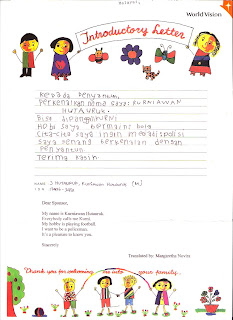 World Vision
Introductory Letter
Kepada Penyantun
Perkenalkan nama saya: KURNIAWAN
HUTAURUK.
Bisa dipanggil KURNI
Hobi saya bermains bola
Cita-cita saya ingin menjadi polisi
saya senang berkenalan dengan
Penyantun.
Terima kasih
NAME : HUTAURUK, Kurniawan Hutauruk (M)
Dear Sponsor,
My name is Kurniawan Hutauruk.
Everybody calls me Kurni
My hobby is playing football.
I want to be a policeman.
It's a pleasure to know you.
Sincerely
Translated by: Margaretha Novira
Thank you for welcoming me into your family...